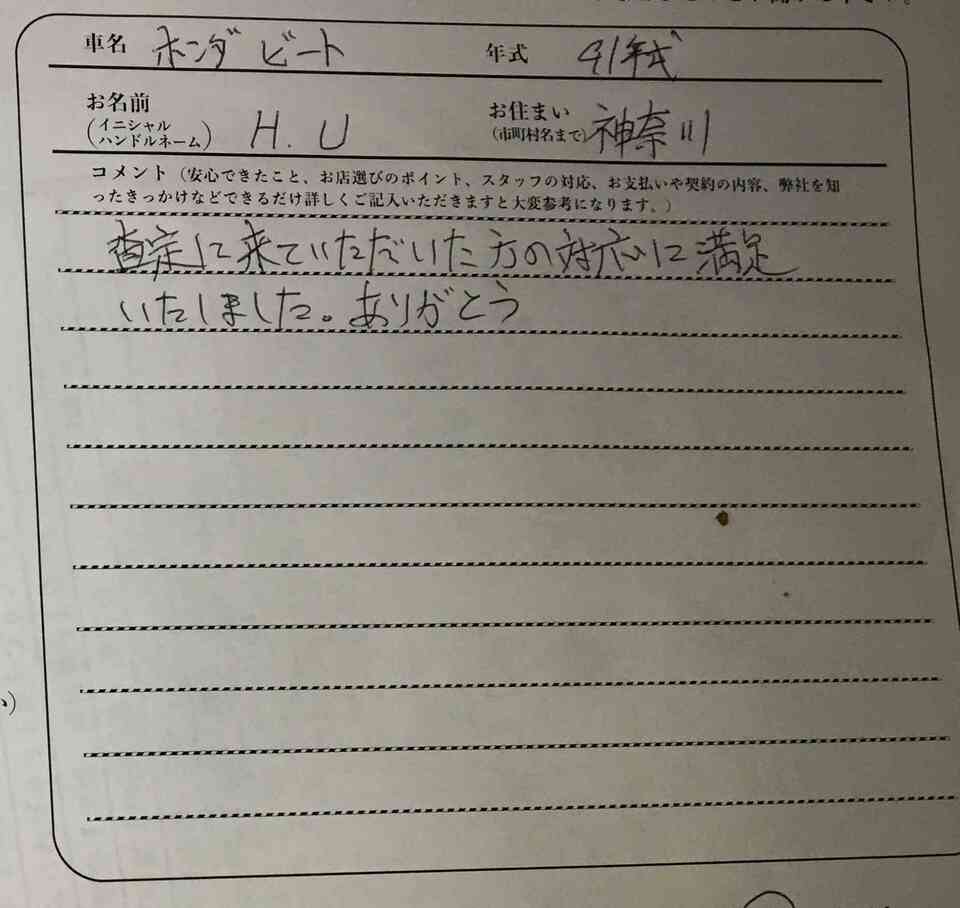 車名 ホンダ ビート 年式 91年式
お名前 (イニシャル ハンドルネーム) H.U お住まい (市町村名まで) 神奈川
コメント (安心できたこと、お店選びのポイント、スタッフの対応、お支払いや契約の内容、弊社を知
ったきっかけなどできるだけ詳しくご記入いただきますと大変参考になります。)
査定に来ていただいた方の対応に満足
いたしました。ありがとう
い)